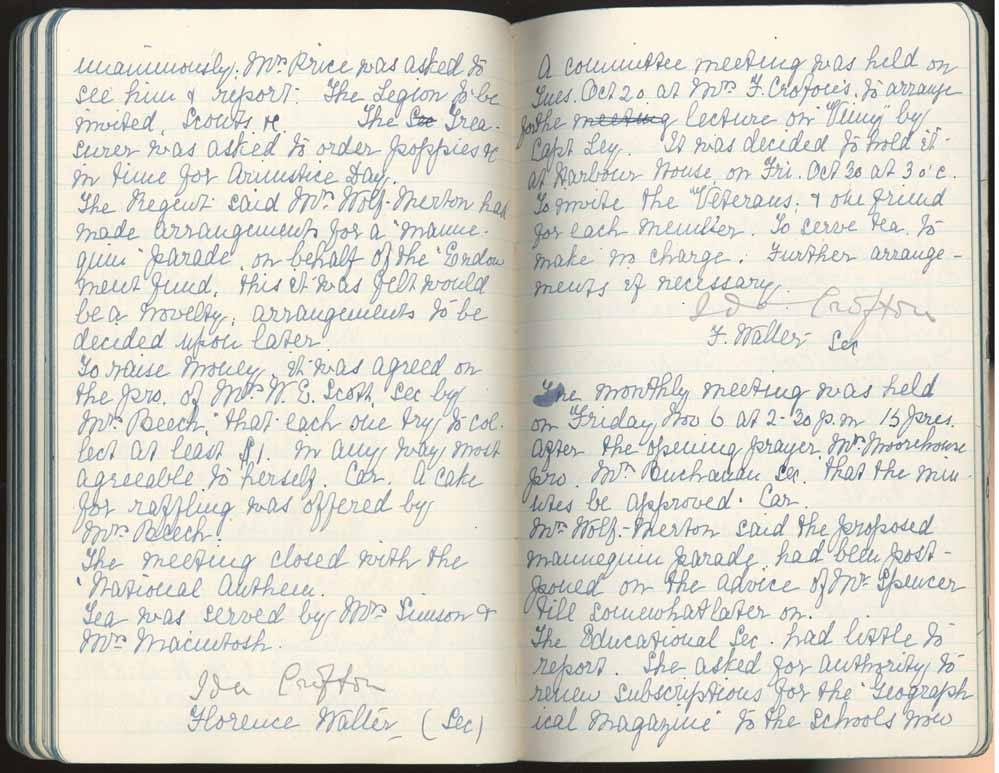 unanimously. Mrs Price was asked to
see him & report. The Legion to be
invited, Scouts &c. The Trea-
surer was asked to order poppies &c
in time for Armistice Day.
The Regent said Mrs Wolf-Merton had
made arrangements for a "manne-
quin" parade, on behalf of the "Endow
ment fund, this it was felt would
be a novelty, arrangements to be
decided upon later.
To raise money, it was agreed on
the pro. of Mrs W. E. Scott, Sec by
Mrs Beech, "that each one try to col-
lect at least $1. in any way most
agreeable to herself. Car. A cake
for raffling was offered by
Mrs Beech.
The meeting closed with the
"National Anthem.
Tea was served by Mrs Simson &
Mrs Macintosh.
Ida Crofton
Florence Walter (Sec)
A committee meeting was held on
Tues. Oct 20 at Mrs F. Crofton's, to arrange
for the meeting lecture on "Vimy" by
Capt Ley. It was decided to hold it
at Harbour House, on Fri. Oct 30 at 3 o'c.
To invite the "Veterans, & one friend
for each member. To serve tea. To
make no charge. Further arrange-
ments if necessary.
Ida Crofton
F. Walter Sec
The monthly meeting was held
on Friday, Nov 6 at 2-30 p.m 15 pres.
After the opening prayer, Mrs Moorhouse
pro. Mrs Buchanan Sec. that the min-
utes be approved. Car.
Mrs Wolf-Merton said the proposed
mannequin parade, had been post-
poned on the advice of Mr Spencer
till somewhat later on.
The Educational Sec. had little to
report. She asked for authority to
renew subscriptions for the "Geograph
ical Magazine" to the schools now